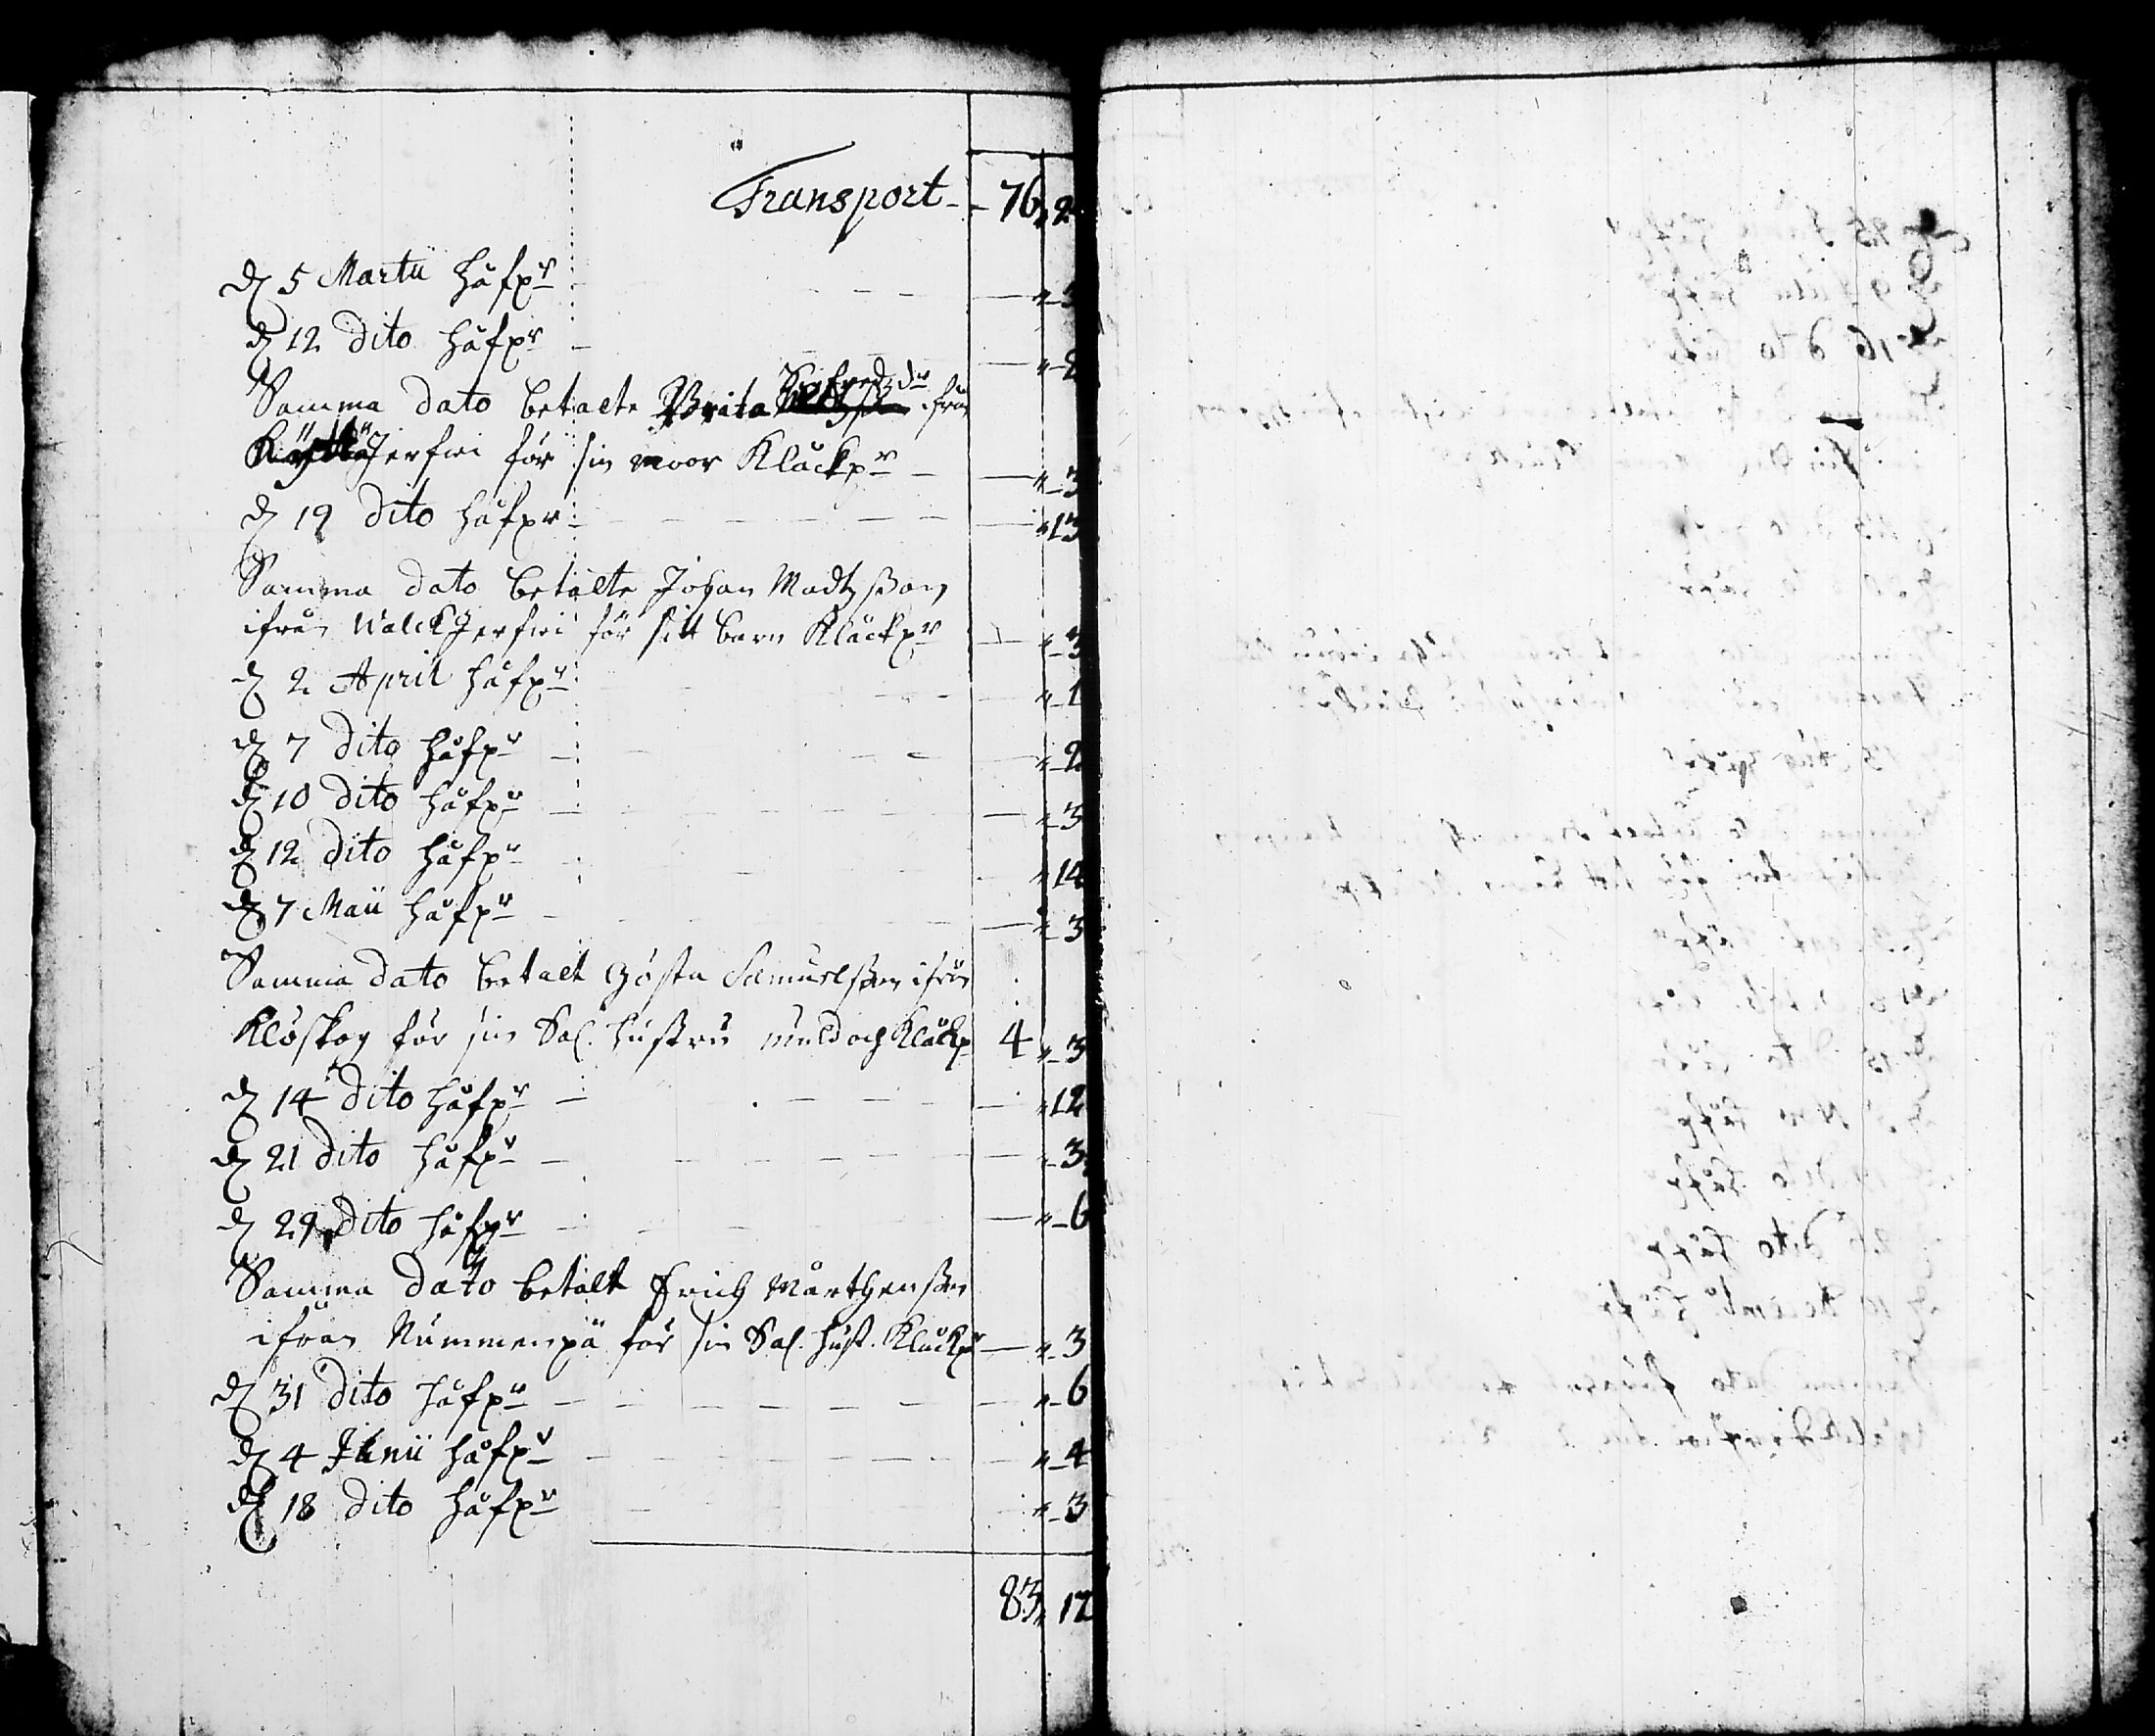 Transport - 76, 2
d 5 Martii håfpr - - - " - 3
d 12 Dito håfpr - " - 2
Samma dato betalte Brita Sigfredzdr ifrån
Jerfwi för sin moor Klåckpr - " - 3
d 19 Dito håfpr - - - - - - " 13
Samma dato betalte Johan Madtzßon
ifrån WalckJerfwi för sitt barn Klåckpr - " - 3
d 2 April håfpr - - - " - 1
d 7 Dito håfpr - - - " - 2
d 10 Dito håfpr - - - " - 3
d 12 Dito håfpr - - " 14
d 7 Maii håfpr - - - " - 3
Samma dato betalt Gösta Samuelßon ifrån
Klöskog för sin Sal. hustru muld och Klåckp 4 " - 3
d 14 Dito håfpr - - - - " 12
d 21 Dito håfpr - - - - - 3
d 29 Dito håfpr - - - " - 6
Samma dato betalt Erich Mårthenßon
ifrån Nummenpä för sin Sal. hust. Klåckpr - " - 3
d 31 Dito håfpr - - - - - - " - 6
d 4 Junii håfpr - - - - - " - 4
d 18 Dito håfpr - " - 3
83, 12